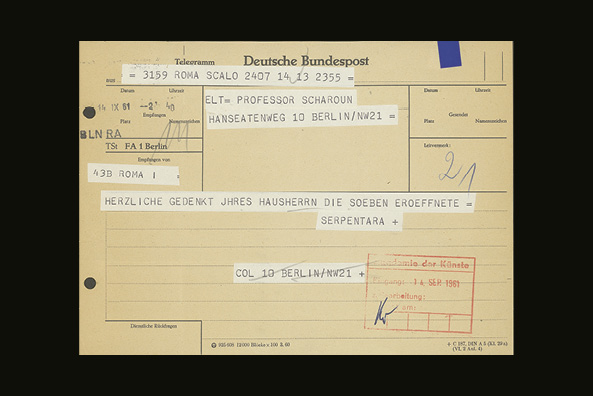 Telegramm Deutsche Bundespost
aus = 3159 ROMA SCALO 2407 14 13 2355 =
Datum Uhrzeit
14 IX 61
Empfangen
Platz Namenszeichen
BLN RA
TSt FA 1 Berlin
Empfangen von
43B ROMA I =
ELT= PROFESSOR SCHAROUN
HANSEATENWEG 10 BERLIN/NW21 =
Datum Uhrzeit
Gesendet
Platz Namenszeichen
Leitvermerk:
HERZLICHE GEDENKT JHRES HAUSHERRN DIE SOEBEN EROEFFNETE =
SERPENTARA +
COL 10 BERLIN/NW21 +
Akademie der Künste
Eingang: 14. SEP. 1961
Bearbeitung:
Dienstliche Rückfragen